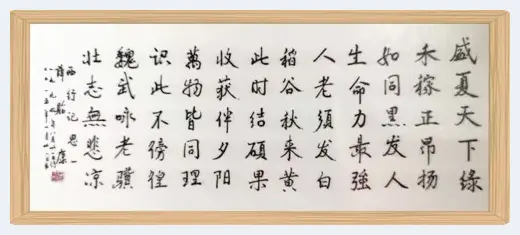 盛夏天下绿
禾稼正昂扬
如同黑发人
生命力最强
人老须发白
稻谷秋来黄
此时结硕果
收获伴夕阳
萬物皆同理
识此不徬徨
魏武咏老骥
壮志無悲凉
西行记思一